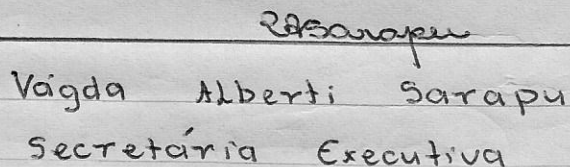 Vágda Alberti Sarapu
Secretária Executiva